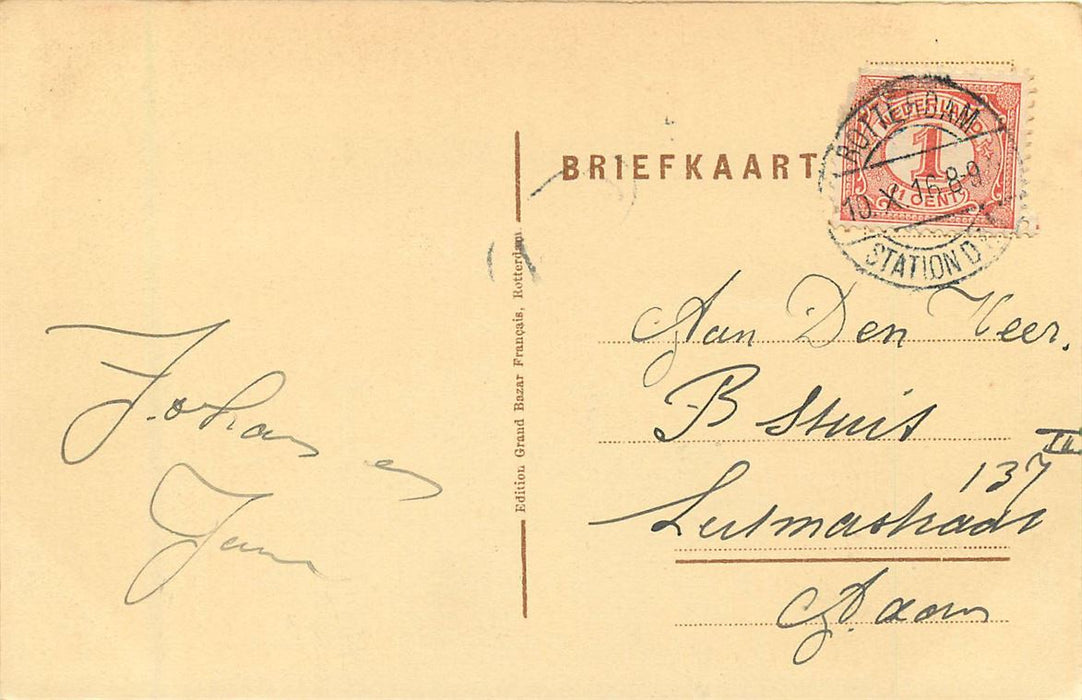 BRIEFKAART
NEDERLAND
1
1 CENT
ROTTERDAM
10.X.16.8-9
STATION D
Edition Grand Bazar Français, Rotterdam
Aan Den Heer.
B Stuit
137 II
Lutmastraat
A.dam
Johan en
Jan